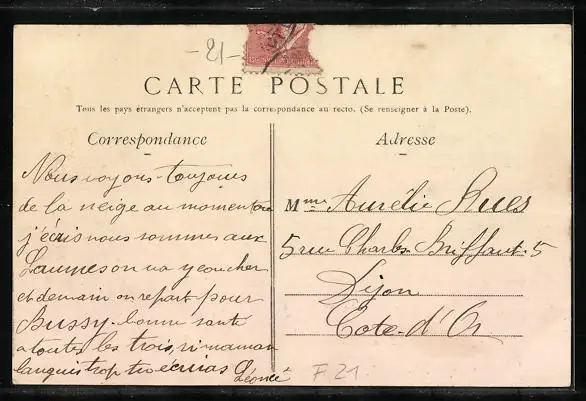 - 21 -
CARTE POSTALE
Tous les pays étrangers n'acceptent pas la correspondance au recto. (Se renseigner à la Poste).
Correspondance
Nous voyons toujours
de la neige au moment où
j'écris nous sommes aux
Laumes on va y coucher
et demain on repart pour
Bussy. bonne santé
a toutes les trois, si maman
languis trop tu écriras Léonce
Adresse
Mme Aurélie Rues
5 rue Charles Briffaut. 5
Dijon
Cote-d'Or
F21